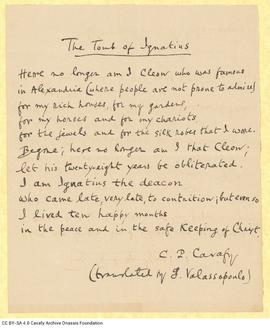 The Tomb of Ignatius
Here no longer am I Cleon who was famous
in Alexandria (where people are not prone to admire)
for my rich houses, for my gardens,
for my horses and for my chariots,
for the jewels and for the silk robes that I wore.
Begone; here no longer am I that Cleon;
let his twentyeight years be obliterated.
I am Ignatius the deacon
who came late, very late to contrition; but even so
I lived ten happy months
in the peace and in the safe keeping of Christ.
C. P. Cavafy
(translated by G. Valassopoulo)
CC BY-SA 4.0 Cavafy Archive Onassis Foundation